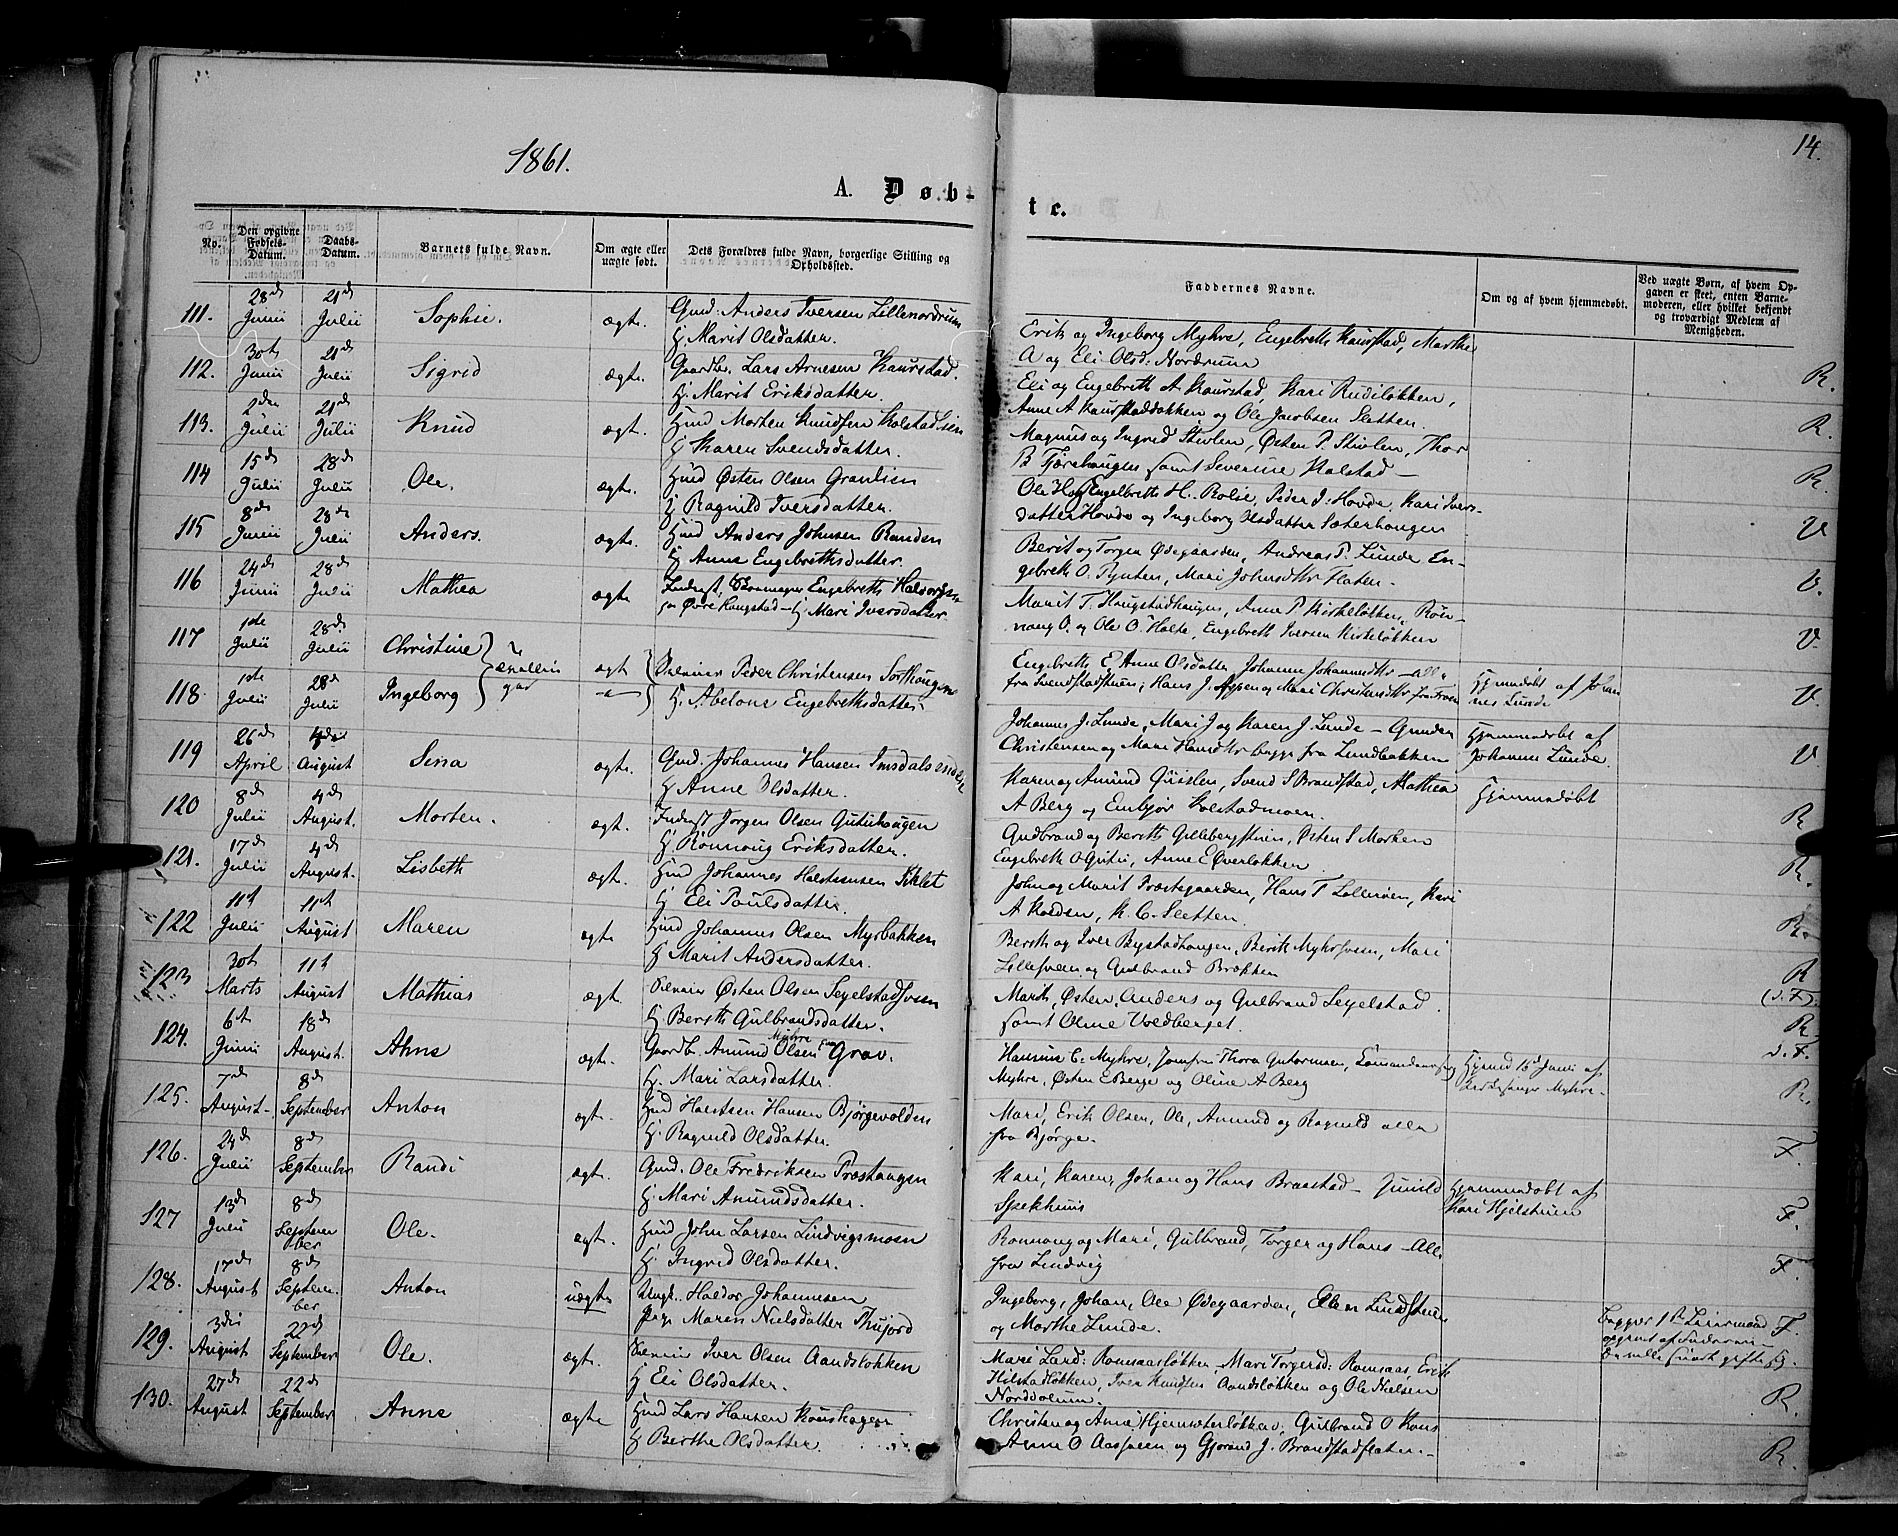 1861.
14.
A. Døb-
te.
No.
Den opgivne Fødsels-Datum.
Daabs-Datum.
Barnets fulde Navn.
Om ægte eller uægte født.
Dets Forældres fulde Navn, borgerlige Stilling og Opholdssted.
Faddernes Navne.
Om og af hvem hjemmedøbt.
Ved uægte Børn, af hvem Opgaven er skeet, enten Barnemoderen, eller hvilket bekjendt og troværdigt Medlem af Menigheden.
111. 28de Junii 21de Julii Sophie. ægte. Gmd. Anders Iversen Lillenordrum
H. Marit Olsdatter.
Erik og Ingeborg Myhre, Engebreth Kaurstad, Marthe
A og Eli Olsd. Nordrum
R.
112. 30te Junii 21de Julii Sigrid ægte. Gaardbr. Lars Arnesen Kaurstad.
H. Marit Eriksdatter.
Eli og Engebreth A Kaurstad, Kari Rudiløkken,
Anne A Kaurstadbakken og Ole Jacobsen Sletten.
R.
113. 2den Julii 21de Julii Knud ægt. Huusmd Morten Knudsen Kolstadlien
H. Karen Svendsdatter.
Magnus og Ingrid Stivlen, Østen P. Stivlen, Thor
B Tjærehougles samt Severine Kolstad
R.
114 15de Julii 28de Julii Ole. ægte. Huusmd Østen Olsen Granlien
H. Ragnild Iversdatter.
Engelbreth H. Rolie, Peder J. Hovde, Kari Ivers-
datter Hovde og Ingeborg Olsdatter Sæterhougen
V
115 8de Junii 28de Julii Anders. ægte. Huusmd Anders Johnsen Randen
H. Anne Engebrethsdatter.
Berit og Torger Ødegaarden, Andreas P. Lunde, En-
gebreth O. Pynten, Mari Johnsdtr Flaten.
V.
116 24de Junii 28de Julii Mathea ægte Inderst, Engebreth Halvorsen
paa Øvre Kongstad – H. Mari Iversdatter
Marit T. Haugstadhaugen, Anne P Kirkeløkken, Røn-
naug O. og Ole O. Holte, Engebreth Iversen Kirkeløkken
V.
117 1ste Julii 28de Julii Christine ægt Peder Christensen Sorthougen
118. 1ste Julii 28de Julii Ingeborg – " – H. Abelone Engebrethsdatter
Engebreth E, Anne Olsdatter, Johanne Johannesdtr – Alle
fra Svendstadstuen; Hans J. Moen og Mari Christensdtr
Hjemmedøbt af Johan-
nes Lunde
V.
Johannes J. Lunde, Mari J og Karen J. Lunde – Gunder
Christensen og Mari Hansdtr begge fra Lundbakken
Hjemmedøbt af
Johannes Lunde.
V
119 26de April 4de August Sina ægte. Gmd. Johannes Hansen Imsdals
H Anne Olsdatter.
Karen og Amund Qvislen, Svend S Brandstad, Mathea
A Berg og Embjør Kolstadmoen.
Hjemmedøbt
R
120 8de Julii 4de August. Morten. ægt. Inderst Jørgen Olsen Gutuhougen
H. Rønnoug Eriksdatter.
Gudbrand og Bereth Gillebergstuen, Østen S Morken
Engebreth O Gutu, Anne E Øverløkken
R.
121. 17de Julii 4de August. Lisbeth ægt. Huusmd Johannes Halstensen Piklet
H Eli Poulsdatter.
John og Marit Præstegaarden, Hans P Lillemoen, Kari
A Kolden, K. C. Sletten
R.
122 11te Julii 11te August Maren ægte Huusmd Johannes Olsen Myrbakken
H Marit Andersdatter.
Bereth og Iver Bystadhaugen, Berith Myhrsveen, Mari
Lillesveen og Gulbrand Brækken
R
123 30te Marts 11te August Mathias ægt. Østen Olsen Segelstadsveen
H Bereth Gulbrandsdatter.
Marith, Østen, Anders og Gulbrand Segelstad
samt Oline Voldberget.
R
124. 6te Junii 18de August. Anne ægte. Gaardbr. Amund Olsen Myhre Grav.
H. Mari Larsdatter.
Hansine C. Myhre, Jomfru Thora Gutormsen,
Myhre, Østen E Berge og Oline A Berg
Hjemd 16de Juni af
Kirkesanger Myhre.
R.
125. 7de August 8de September Anton ægt. Huusmd Halsten Hansen Bjørgevolden
H. Ragnild Olsdatter.
Mari, Erik Olsen, Ole, Amund og Ragnild alle
fra Bjørge.
F.
126. 24de Julii 8de September Randi ægt. Gmd. Ole Fredriksen Præsthaugen
H. Mari Amundsdatter.
Kari, Karen, Johan og Hans Braastad – Gunild
Spekhuus
Hjemmedøbt af
Kari Hjelstuen
F.
127 13de Julii 8de September Ole. ægte. Huusmd John Larsen Lindvigsmoen
H. Ingrid Olsdatter.
Rønnaug og Mari, Gulbrand, Torger og Hans – Alle
fra Lindvig
F.
128. 17de August 8de September Anton uægte Ungk. Haldor Johannesen
Pige Maren Nielsdatter Thujord
Ingeborg, Johan, Ole Ødegaarden, Elen Lundstuen
og Marthe Lunde.
Begges 1ste Leiermaal
opgivet af Faderen
F.
129. 3die August 22de September Ole. ægte. Iver Olsen Aandsløkken
H Eli Olsdatter.
Mari Larsd. Romsaasløkken, Mari Torgersd. Romsaas, Erik
Hilstadløkken, Iver Knudsen Aandsløkken og Ole Nielsen
Norddorum.
R.
130. 27de August 22de September Anne ægte Huusmd Lars Hansen Kaushagen
H Berthe Olsdatter.
Christen og Anne Hjemsæterløkken, Gulbrand O Kaus
Anne O Aassveen og Gjørand J. Brandstadflaten.
R.